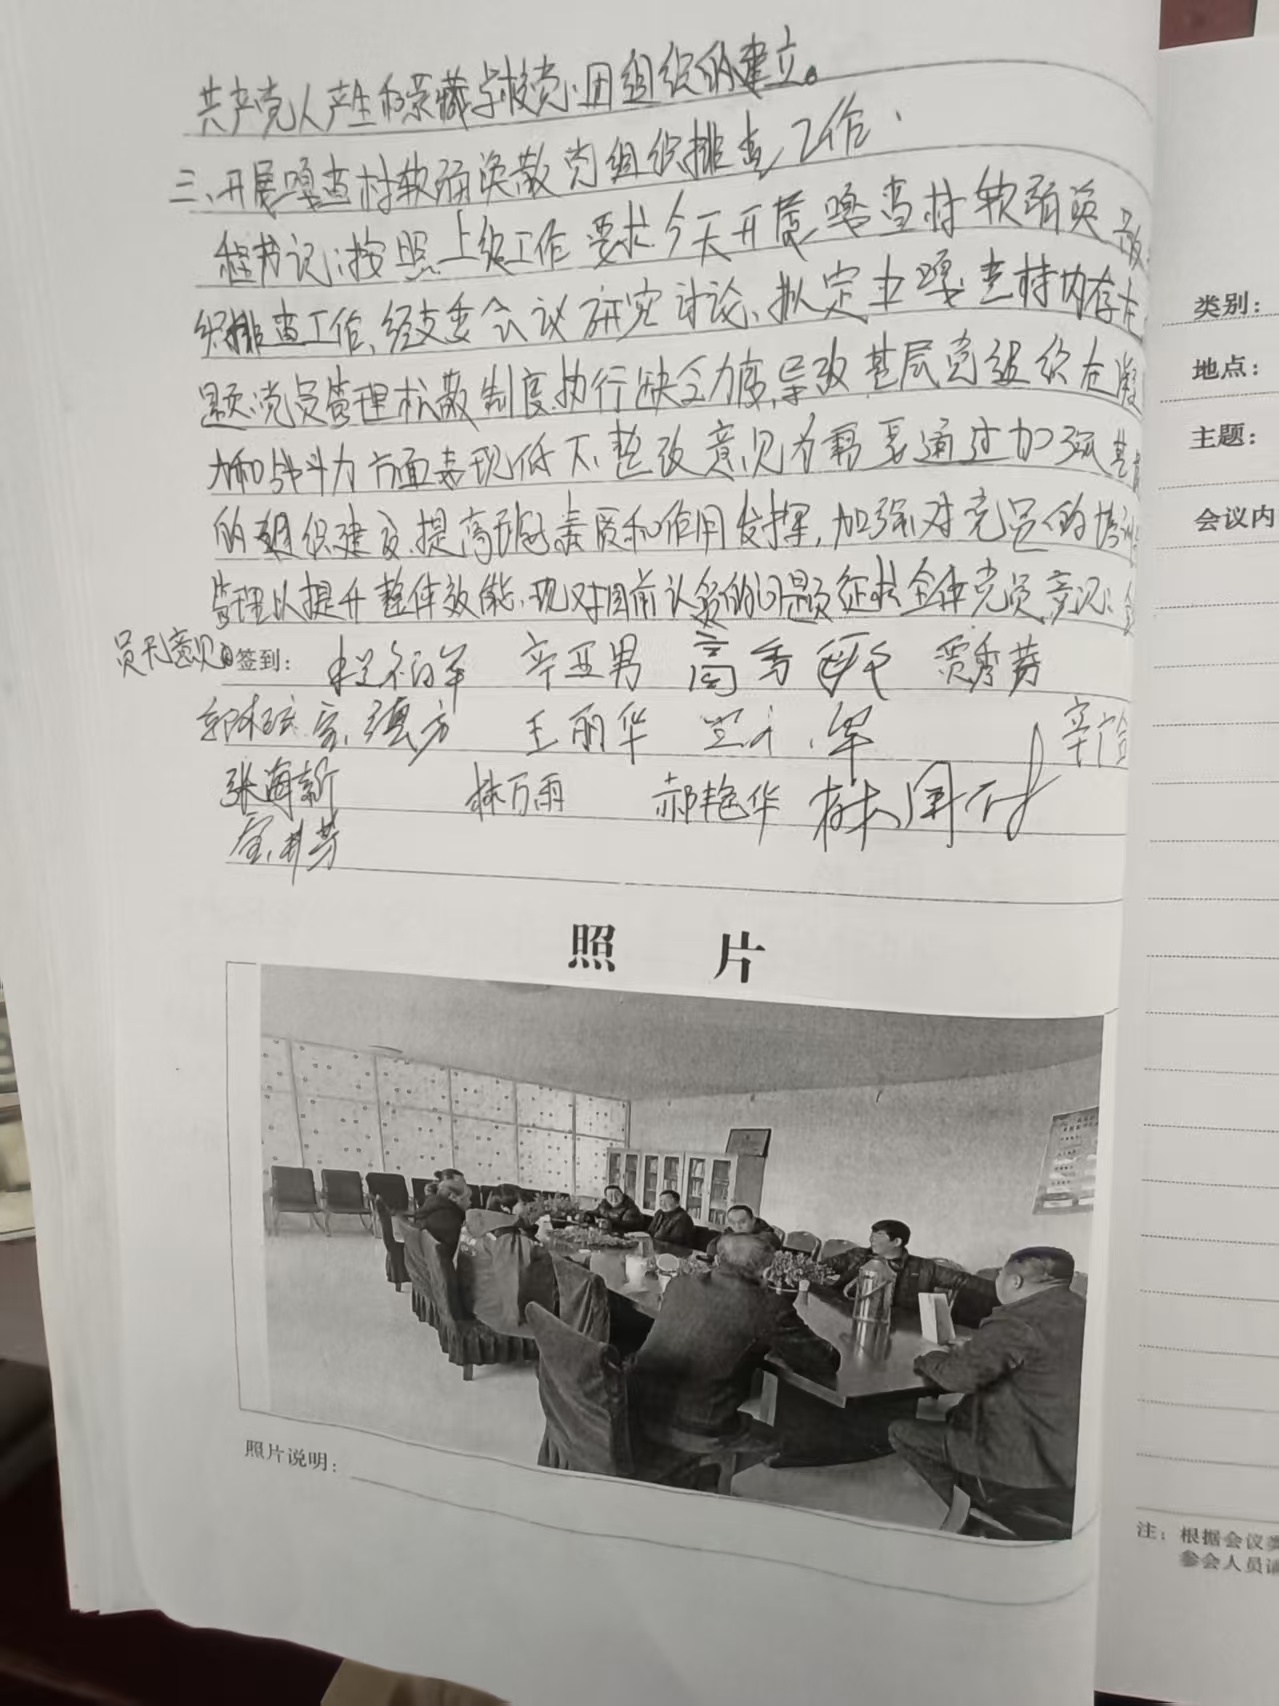 共产党人产生和蒙藏学校党、团组织的建立。
三、开展嘎查村软弱涣散党组织排查工作.
程书记:按照上级工作要求今天开展嘎查村软弱涣散
织排查工作,经支委会议研究讨论,拟定 嘎查村内存在
题:党员管理松散制度执行缺乏力度,导致基层党组织在凝
力和战斗力方面表现低下,整改意见为需要通过加强基
的组织建设,提高 素质和作用发挥,加强对党员的培训
管理以提升整体效能,现对目前 的问题征求全体党员意见:全
员无意见。签到:
辛亚男 高秀 贾秀芳
王丽华
张海新 林万雨 郝艳华
照 片
照片说明:
类别:
地点:
主题:
会议内
注:根据会议类
参会人员请